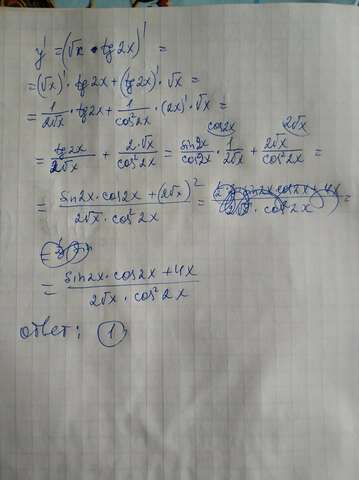 y' = (√x · tg2x)' =
= (√x)' · tg2x + (tg2x)' · √x =
= 1/(2√x) · tg2x + 1/(cos²2x) · (2x)' · √x =
= tg2x/(2√x) + (2·√x)/(cos²2x) = sin2x/cos2x · 1/(2√x) + 2√x/(cos²2x) = cos2x 2√x
= (sin2x · cos2x + (2√x)²)/(2√x · cos²2x) =
= (sin2x · cos2x + 4x)/(2√x · cos²2x)
ответ: 1